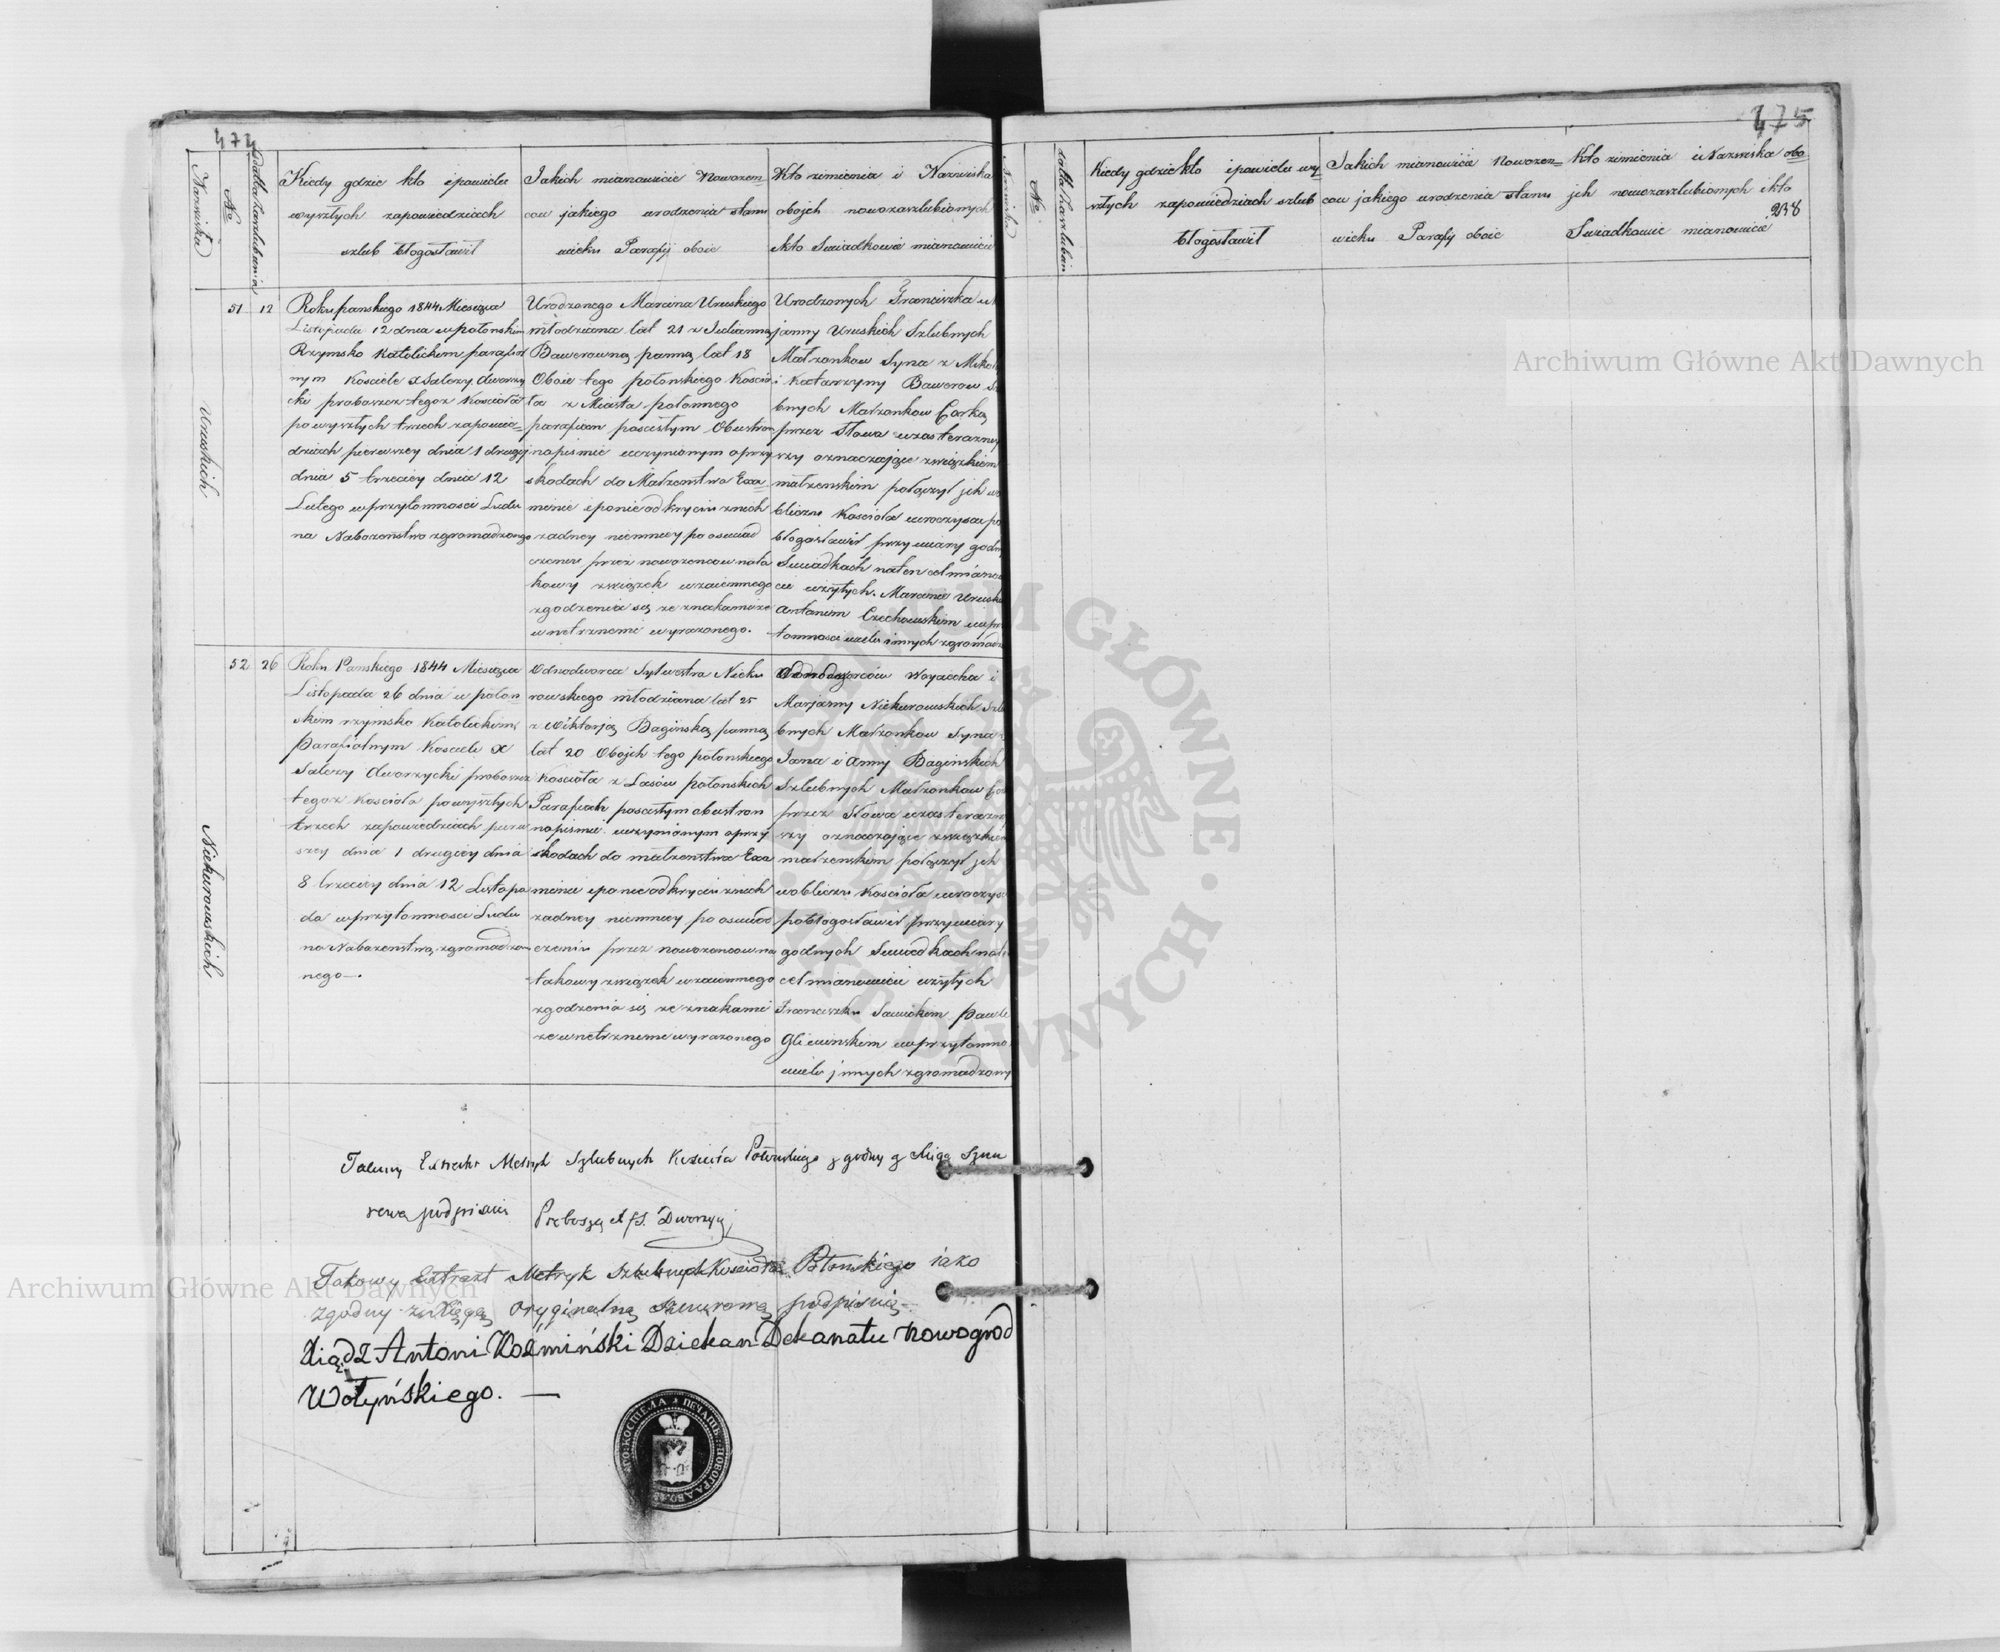 474
Nazwiska
No
Data zaszlubienia
Kiedy gdzie kto i po wielu
wyszłych zapowiedziach
szlub błogosławił
Jakich mianowicie Nowożeń-
cow jakiego urodzenia stanu
wieku Parafij oboie
Kto z imienia i Nazwiska
obojch nowozaszlubionych
i kto Swiadkowie mianowicie
Uruskich
51 12
Roku panskiego 1844 Miesiąca
Listopada 12 dnia w połonskim
Rzymsko Katolickim parafial
nym Kosciele X Salezy Dworzy
cki proboszcz tegoz Kościoła
po wyszłych trzech zapowie-
dziach pierwszey dnia 1 drugiy
dnia 5 trzeciey dnia 12
Lutego w przytomnosci Ludu
na Nabożeństwo zgromadzonego
Urodzonego Marcina Uruskiego
młodziana lat 21 z Julianną
Bawerowną panną lat 18
Oboie tego połonskiego Koscio
ła z Miasta połonnego
parafian poszłym Obustron
napismie uczynionym o przy
skodach do Małżenstwa Exa-
minie i po nie odkryciu znich
zadney niemniey po oswiad
czeniu przez nowozencow na ta
kowy związek wzaiemnego
zgodzenia się ze znakami ze
wnetrznemi wyrazonego.
Urodzonych Franciszka i M
janny Uruskich Szlubnych
Małzonkow Syna z Miko
i Katarzyny Bawerow S
bnych Małzonkow Corką
przez Słowa wzas terazny
szy oznaczające związkiem
małzenskim połączył jch w
bliczu Kościoła uroczyscie po
błogosławił przy wiary godn
Swiadkach na ten cel mianow
cie użytych. Marcinie Urusk
Antonim Czechowskim w pr
tomnosci wielu innych zgromadz
Niekurowskich
52 26
Roku Panskiego 1844 Miesiąca
Listopada 26 dnia w połon
skim rzymsko Katolickim
Parafialnym Kosciele X
Salezy Dworzycki proboszcz
tegoz Kościoła po wyszłych
trzech zapowiedziach pierw
szey dnia 1 drugiey dnia
8 trzeciey dnia 12 Listopa
da w przytomnosci Ludu
na Nabożenstwo zgromadzo
nego —.
Odnodworca Sylwestra Nieku
rowskiego młodziana lat 25
z Wiktorją Baginską panną
lat 20 Obojch tego połonskiego
Kościoła z Lasów połonskich
Parafiach poszłym obustron
napismie uczynionym o przy
skodach do małzenstwa Exa
minie i po nie odkryciu znich
zadney niemniey po oswiad
czeniu przez nowozencow na
takowy związek wzaiemnego
zgodzenia się ze znakami
zewnetrznemi wyrazonego
Odnodworców Woyciecha i
Marjanny Niekurowskich Szlu
bnych Małzonkow Syna
Jana i Anny Baginskich
Szlubnych Małzonkow Co
przez Słowa wzas terazny
szy oznaczające związkiem
małzenskim połączył jch
w obliczu Kościoła uroczys
pobłogosławił przy wiary
godnych Swiadkach na t
cel mianowicie użytych
Franciszku Sawickim Pawle
Gliwinskim w przytomno
wielu jnnych zgromadzony
Takowy Extrakt Metryk Szlubnych Kościoła Połonskiego zgodny z Xięgą Sznu
rową podpisuię Proboszcz X f S. Dworzycki
Takowy Extrakt Metryk Szlubnych Kościoła Połonskiego iako
zgodny z xięgą oryginalną sznurową podpisuię.
Xiądz Antoni Koźmiński Dziekan Dekanatu Nowogród
Wołyńskiego. —
КОСТЕЛА ПЕЧАТЬ НОВОГРАДВОЛ
475
Nazwiska
No
Data zaszlubien
Kiedy gdzie kto i po wielu wy-
szłych zapowiedziach szlub
błogosławił
Jakich mianowicie Nowozen-
cow jakiego urodzenia stanu
wieku Parafij oboie
Kto z imienia i Nazwiska obo-
jch nowozaszlubionych i kto
Swiadkowie mianowicie
238
Archiwum Główne Akt Dawnych
Archiwum Główne Akt Dawnych
ARCHIWUM GŁÓWNE AKT DAWNYCH